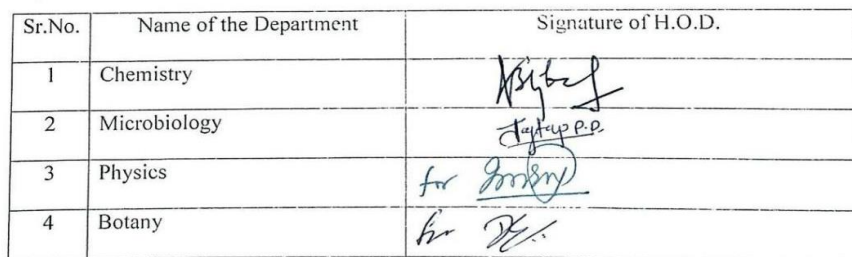 Sr.No. Name of the Department Signature of H.O.D.
1 Chemistry
2 Microbiology P.D.
3 Physics for
4 Botany for